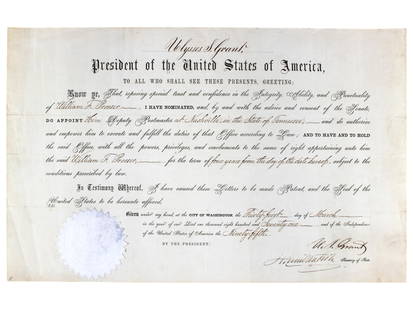 Ulysses S. Grant
President of the United States of America,
TO ALL WHO SHALL SEE THESE PRESENTS, GREETING:
Know ye, That, reposing special trust and confidence in the Integrity, Ability, and Punctuality
of William F. I HAVE NOMINATED, and, by and with the advice and consent of the Senate,
DO APPOINT Him Deputy Postmaster at Nashville, in the State of Tennessee; and do authorize
and empower him to execute and fulfil the duties of that Office according to Law; AND TO HAVE AND TO HOLD
the said Office, with all the powers, privileges, and emoluments to the same of right appertaining unto him
the said William F. for the term of four years from the day of the date hereof, subject to the
conditions prescribed by law.
In Testimony Whereof, I have caused these Letters to be made Patent, and the Seal of the
United States to be hereunto affixed.
Given under my hand at the CITY OF WASHINGTON, the day of March
in the year of our Lord one thousand eight hundred and Seventy one and of the Independence
of the United States of America the Ninety fifth.
BY THE PRESIDENT: U. S. Grant
Hamilton Fish Secretary of State.